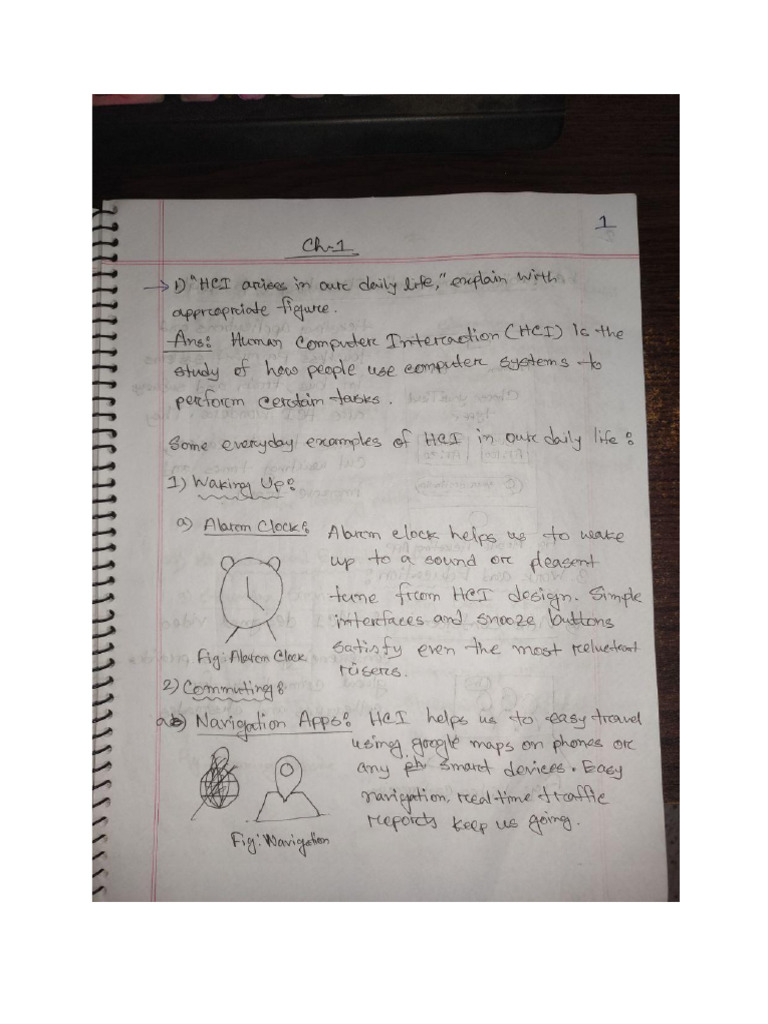 1
Ch-1
→ 1) "HCI arises in our daily life," explain with
appropriate figure.
Ans: Human Computer Interaction (HCI) Is the
study of how people use computer systems to
perform certain tasks.
Some everyday examples of HCI in our daily life:
1) Waking Up:
a) Alarm Clock: Alarm clock helps us to wake
up to a sound or pleasent
tune from HCI design. Simple
interfaces and snooze buttons
satisfy even the most reluctant
risers.
Fig: Alarm Clock
2) Commuting:
a) Navigation Apps: HCI helps us to easy travel
using google maps on phones or
any smart devices. Easy
navigation, real-time traffic
reports keep us going.
Fig: Navigation